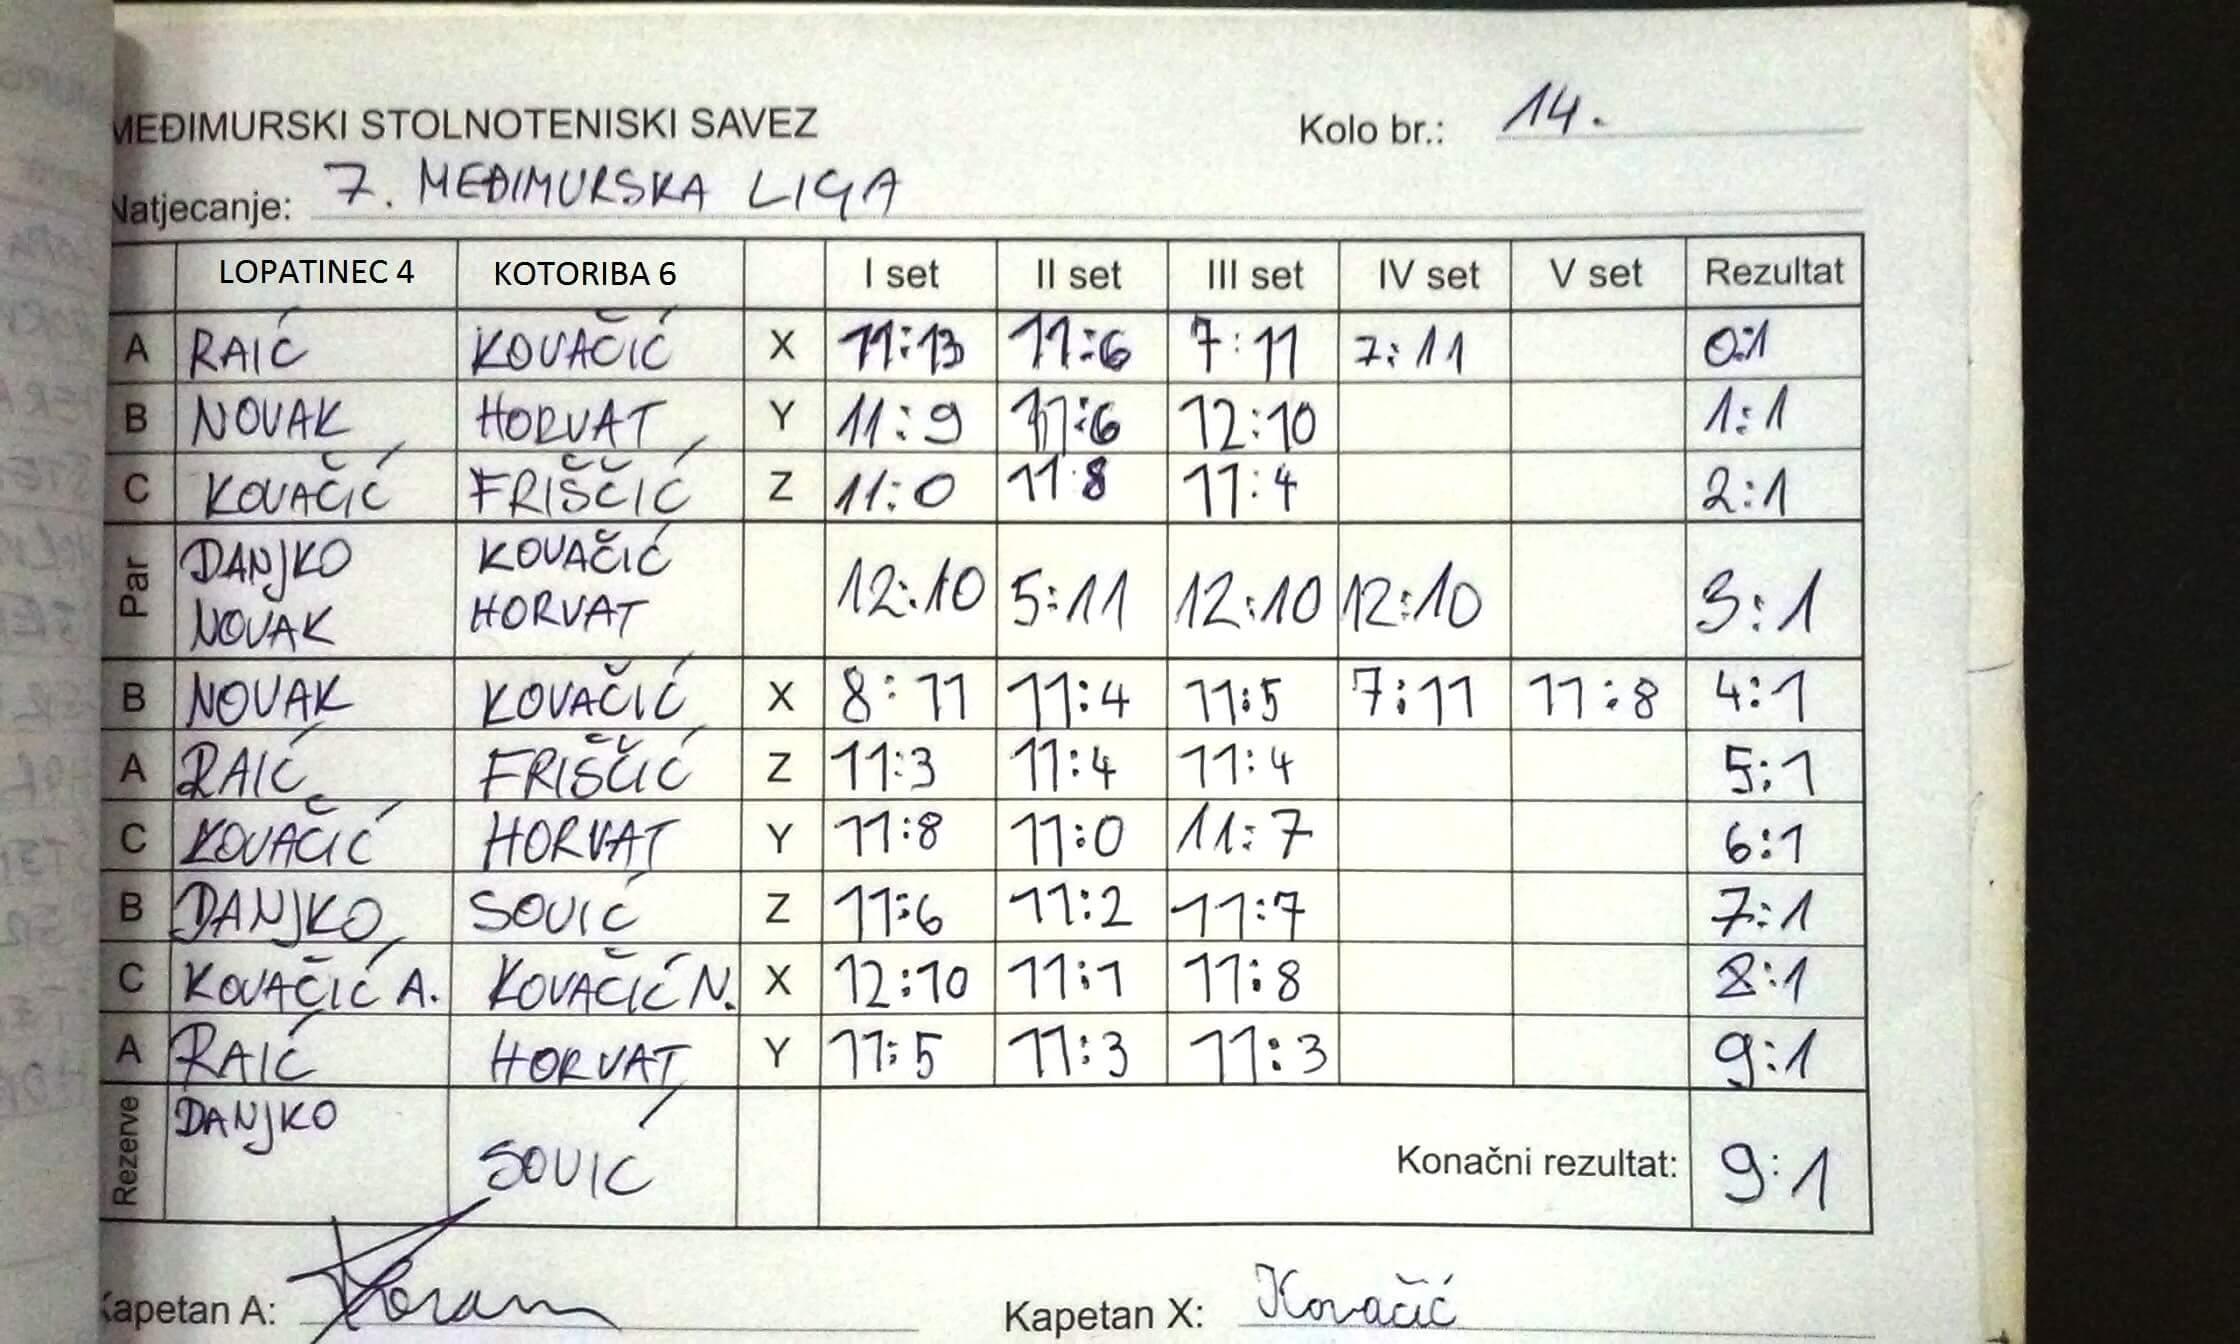 MEĐIMURSKI STOLNOTENISKI SAVEZ Kolo br.: 14.
Natjecanje: 7. MEĐIMURSKA LIGA
LOPATINEC 4 KOTORIBA 6 I set II set III set IV set V set Rezultat
A RAIĆ KOVAČIĆ X 11:13 11:6 7:11 7:11 0:1
B NOVAK HORVAT Y 11:9 11:6 12:10 1:1
C KOVAČIĆ FRIŠČIĆ Z 11:0 11:8 11:4 2:1
Par DANJKO KOVAČIĆ
NOVAK HORVAT 12:10 5:11 12:10 12:10 3:1
B NOVAK KOVAČIĆ X 8:11 11:4 11:5 7:11 11:8 4:1
A RAIĆ FRIŠČIĆ Z 11:3 11:4 11:4 5:1
C KOVAČIĆ HORVAT Y 11:8 11:0 11:7 6:1
B DANJKO SOVIĆ Z 11:6 11:2 11:7 7:1
C KOVAČIĆ A. KOVAČIĆ N. X 12:10 11:1 11:8 8:1
A RAIĆ HORVAT Y 11:5 11:3 11:3 9:1
Rezerve DANJKO
SOVIĆ Konačni rezultat: 9:1
Kapetan A: Kapetan X: Kovačić